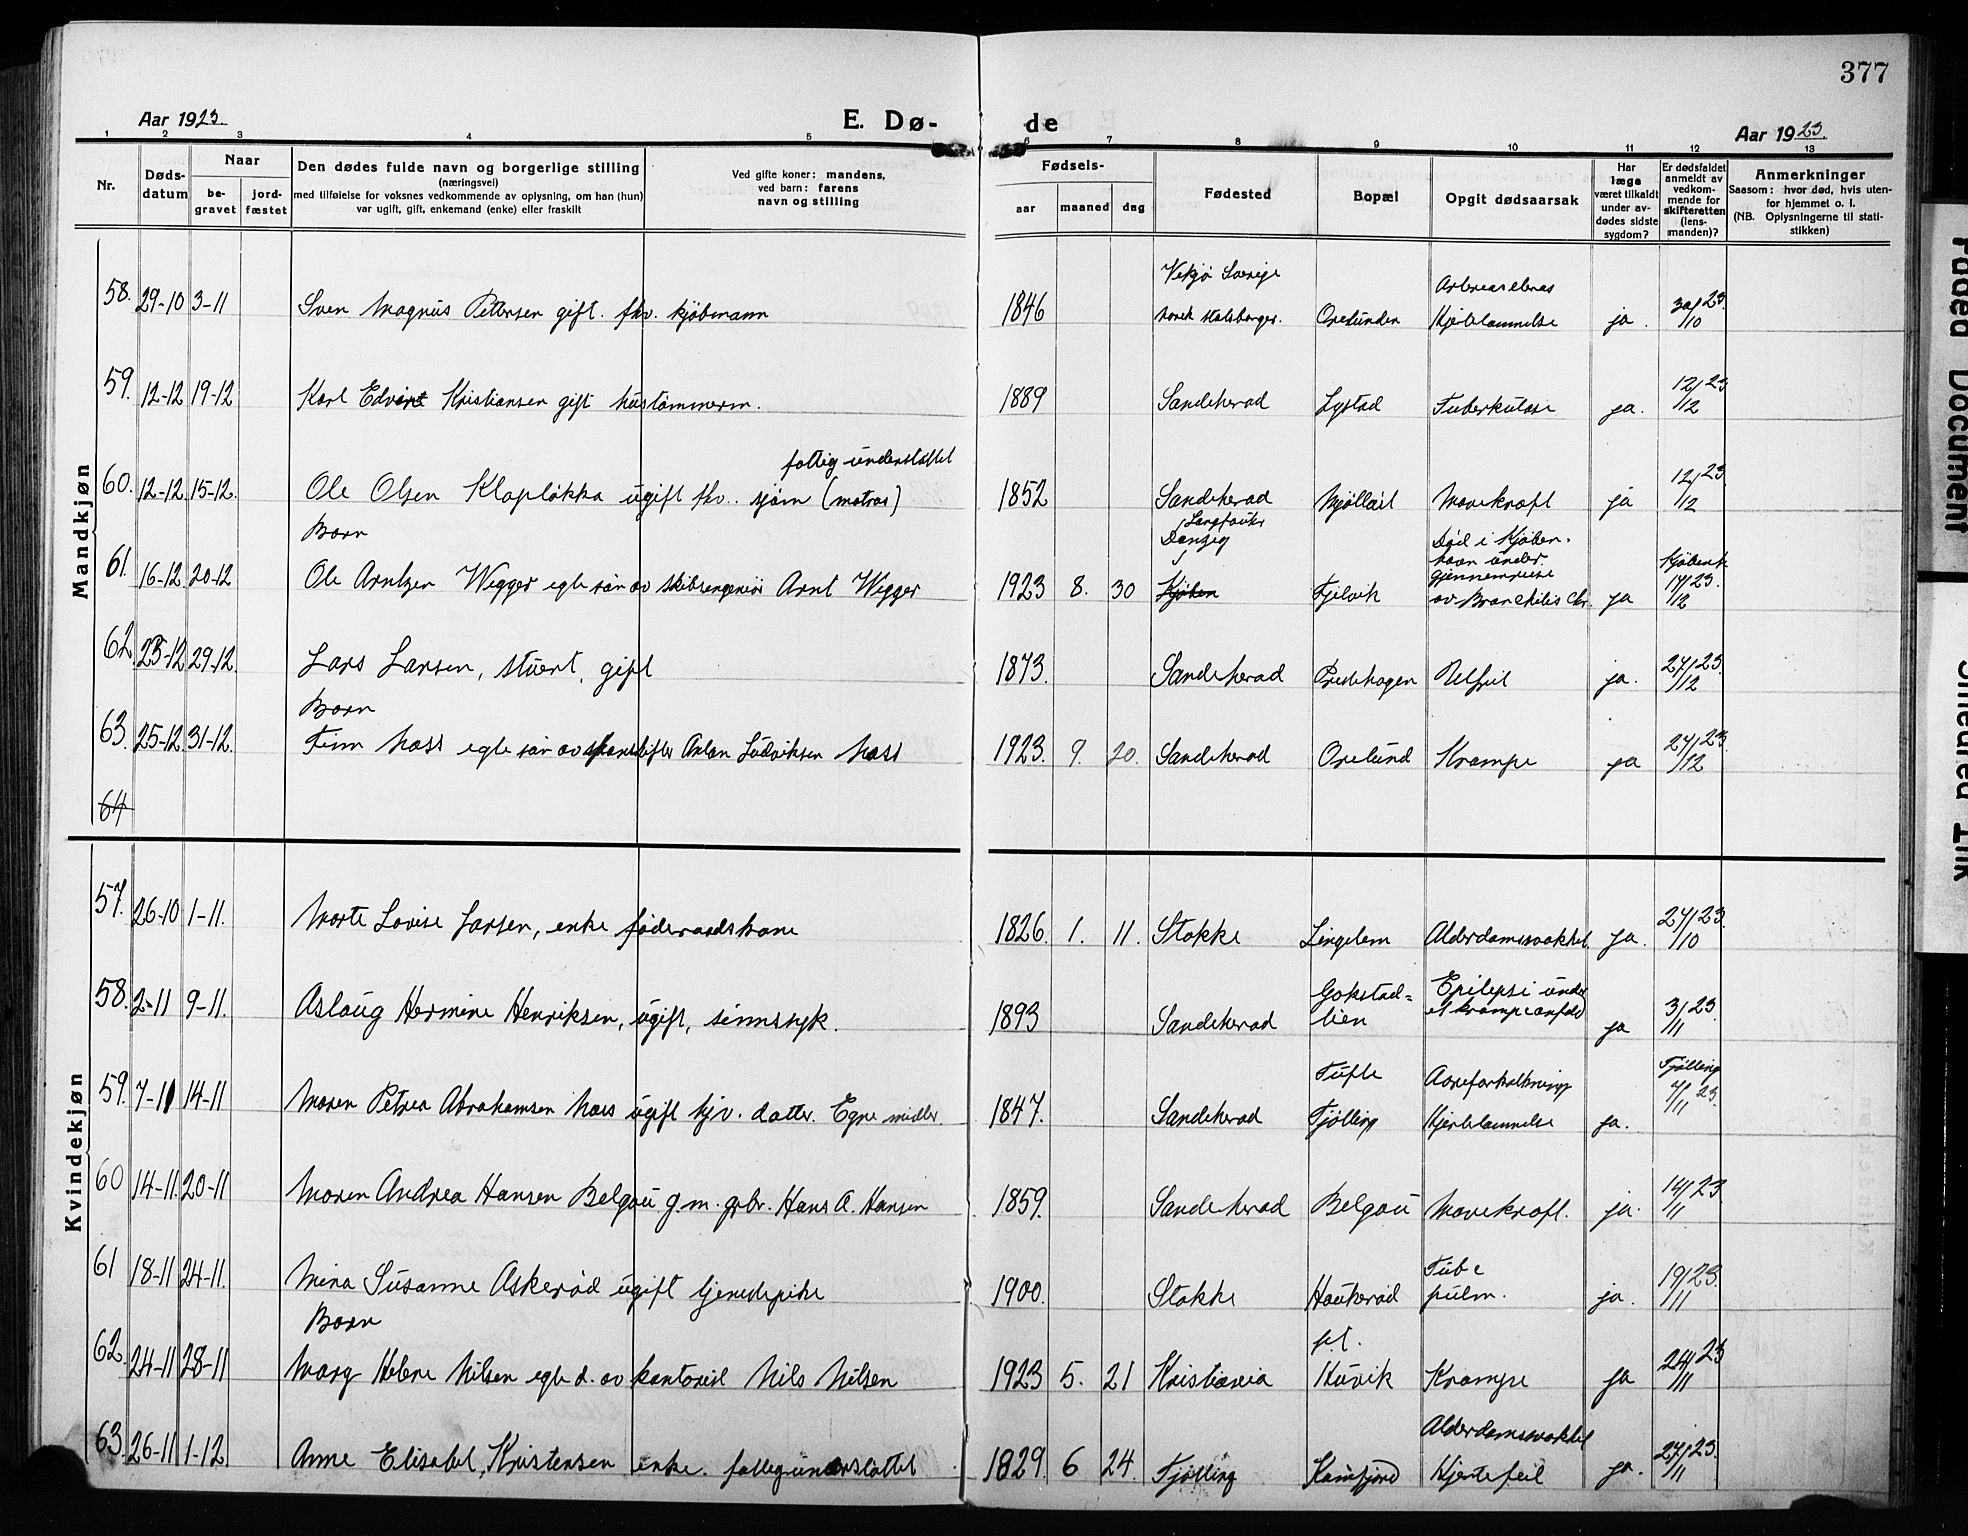 377
Aar 1923.
E. Dø-
de
Aar 1923.
1 2 3 4 5 6 7 8 9 10 11 12 13
Nr.
Døds-
datum
Naar
be-
gravet
jord-
fæstet
Den dødes fulde navn og borgerlige stilling
(næringsvei)
med tilføielse for voksnes vedkommende av oplysning, om han (hun)
var ugift, gift, enkemand (enke) eller fraskilt
Ved gifte koner: mandens,
ved barn: farens
navn og stilling
Fødsels-
aar
maaned
dag
Fødested
Bopæl
Opgit dødsaarsak
Har
læge
været tilkaldt
under av-
dødes sidste
sygdom?
Er dødsfaldet
anmeldt av
vedkom-
mende for
skifteretten
(lens-
manden)?
Anmerkninger
Saasom: hvor død, hvis uten-
for hjemmet o. l.
(NB. Oplysningerne til stati-
stikken)
Mandkjøn
58. 29-10 3-11 Sven Magnus Pettersen gift. fhv. kjøbmann 1846 Vekjø Sverige Hjertelammelse ja. 30/10 23.
59. 12-12 19-12 Karl Edvart Kristiansen gift hustømmerm. 1889 Sandeherad Lystad Tuberkulose ja. 12/12 23
fattig understøttet
60. 12-12 15-12. Ole Olsen Klapløkka ugift fhv. sjøm (matros) 1852 Sandeherad Mjøllært Mavekræft ja 12/12 23.
Barn
61. 16-12 20-12 Ole Arntzen Wegger egte søn av skibsingeniør Arnt Wegger 1923 8. 30 Langfouhr Danzig Kjøben Fjelvik Død i Kjøben-
havn under
gjennemreise
av Bronchitis Chr. ja Kjøbenh. 17/12 23.
62. 23-12 29-12. Lars Larsen, stuert, gift 1873. Sandeherad Bredehagen ja. 27/12 23.
Barn
63. 25-12 31-12. Finn Hass egte søn av Anton Ludviksen Hass 1923. 9. 20. Sandeherad Orelund Krampe ja 27/12 23
64
Kvindekjøn
57. 26-10 1-11. Marte Lovise Larsen, enke føderaadskone 1826. 1. 11. Stokke Lingelem Alderdomssvakhet ja. 27/10 23.
58. 2-11 9-11. Aslaug Hermine Henriksen, ugift, sinnssyk. 1893 Sandeherad Gokstad=
lien Epilepsi under
et krampeanfald ja 3/11 23.
59. 7-11 14-11 Maren Petrea Abrahamsen Haes ugift hjv. datter. Egne midler. 1847. Sandeherad Tufte
Fjølling Aareforkalkning
Hjertelammelse ja. Fjølling
7/11 23.
60 14-11. 20-11 Maren Andrea Hansen Belgau g.m. grbr. Hans A. Hansen 1859. Sandeherad Belgau Mavekræft. ja. 14/11 23
61 18-11 24-11. Mina Susanne Askerød ugift tjenestepike 1900. Stokke Haukerød Tub c
pulm. ja. 19/11 23.
Barn
62. 24-11 28-11 Marg Helene Nilsen egte d. av kontorist Nils Nilsen 1923 5. 21 Kristiania p.t.
Huvik Krampe ja 24/11 23
63. 26-11 1-12 Anne Elisabet Kristensen enke. fattigunderstøttet 1829. 6 24. Fjølling Kamfjord Alderdomssvakhet
Hjertefeil ja. 27/11 23.
Faded Document